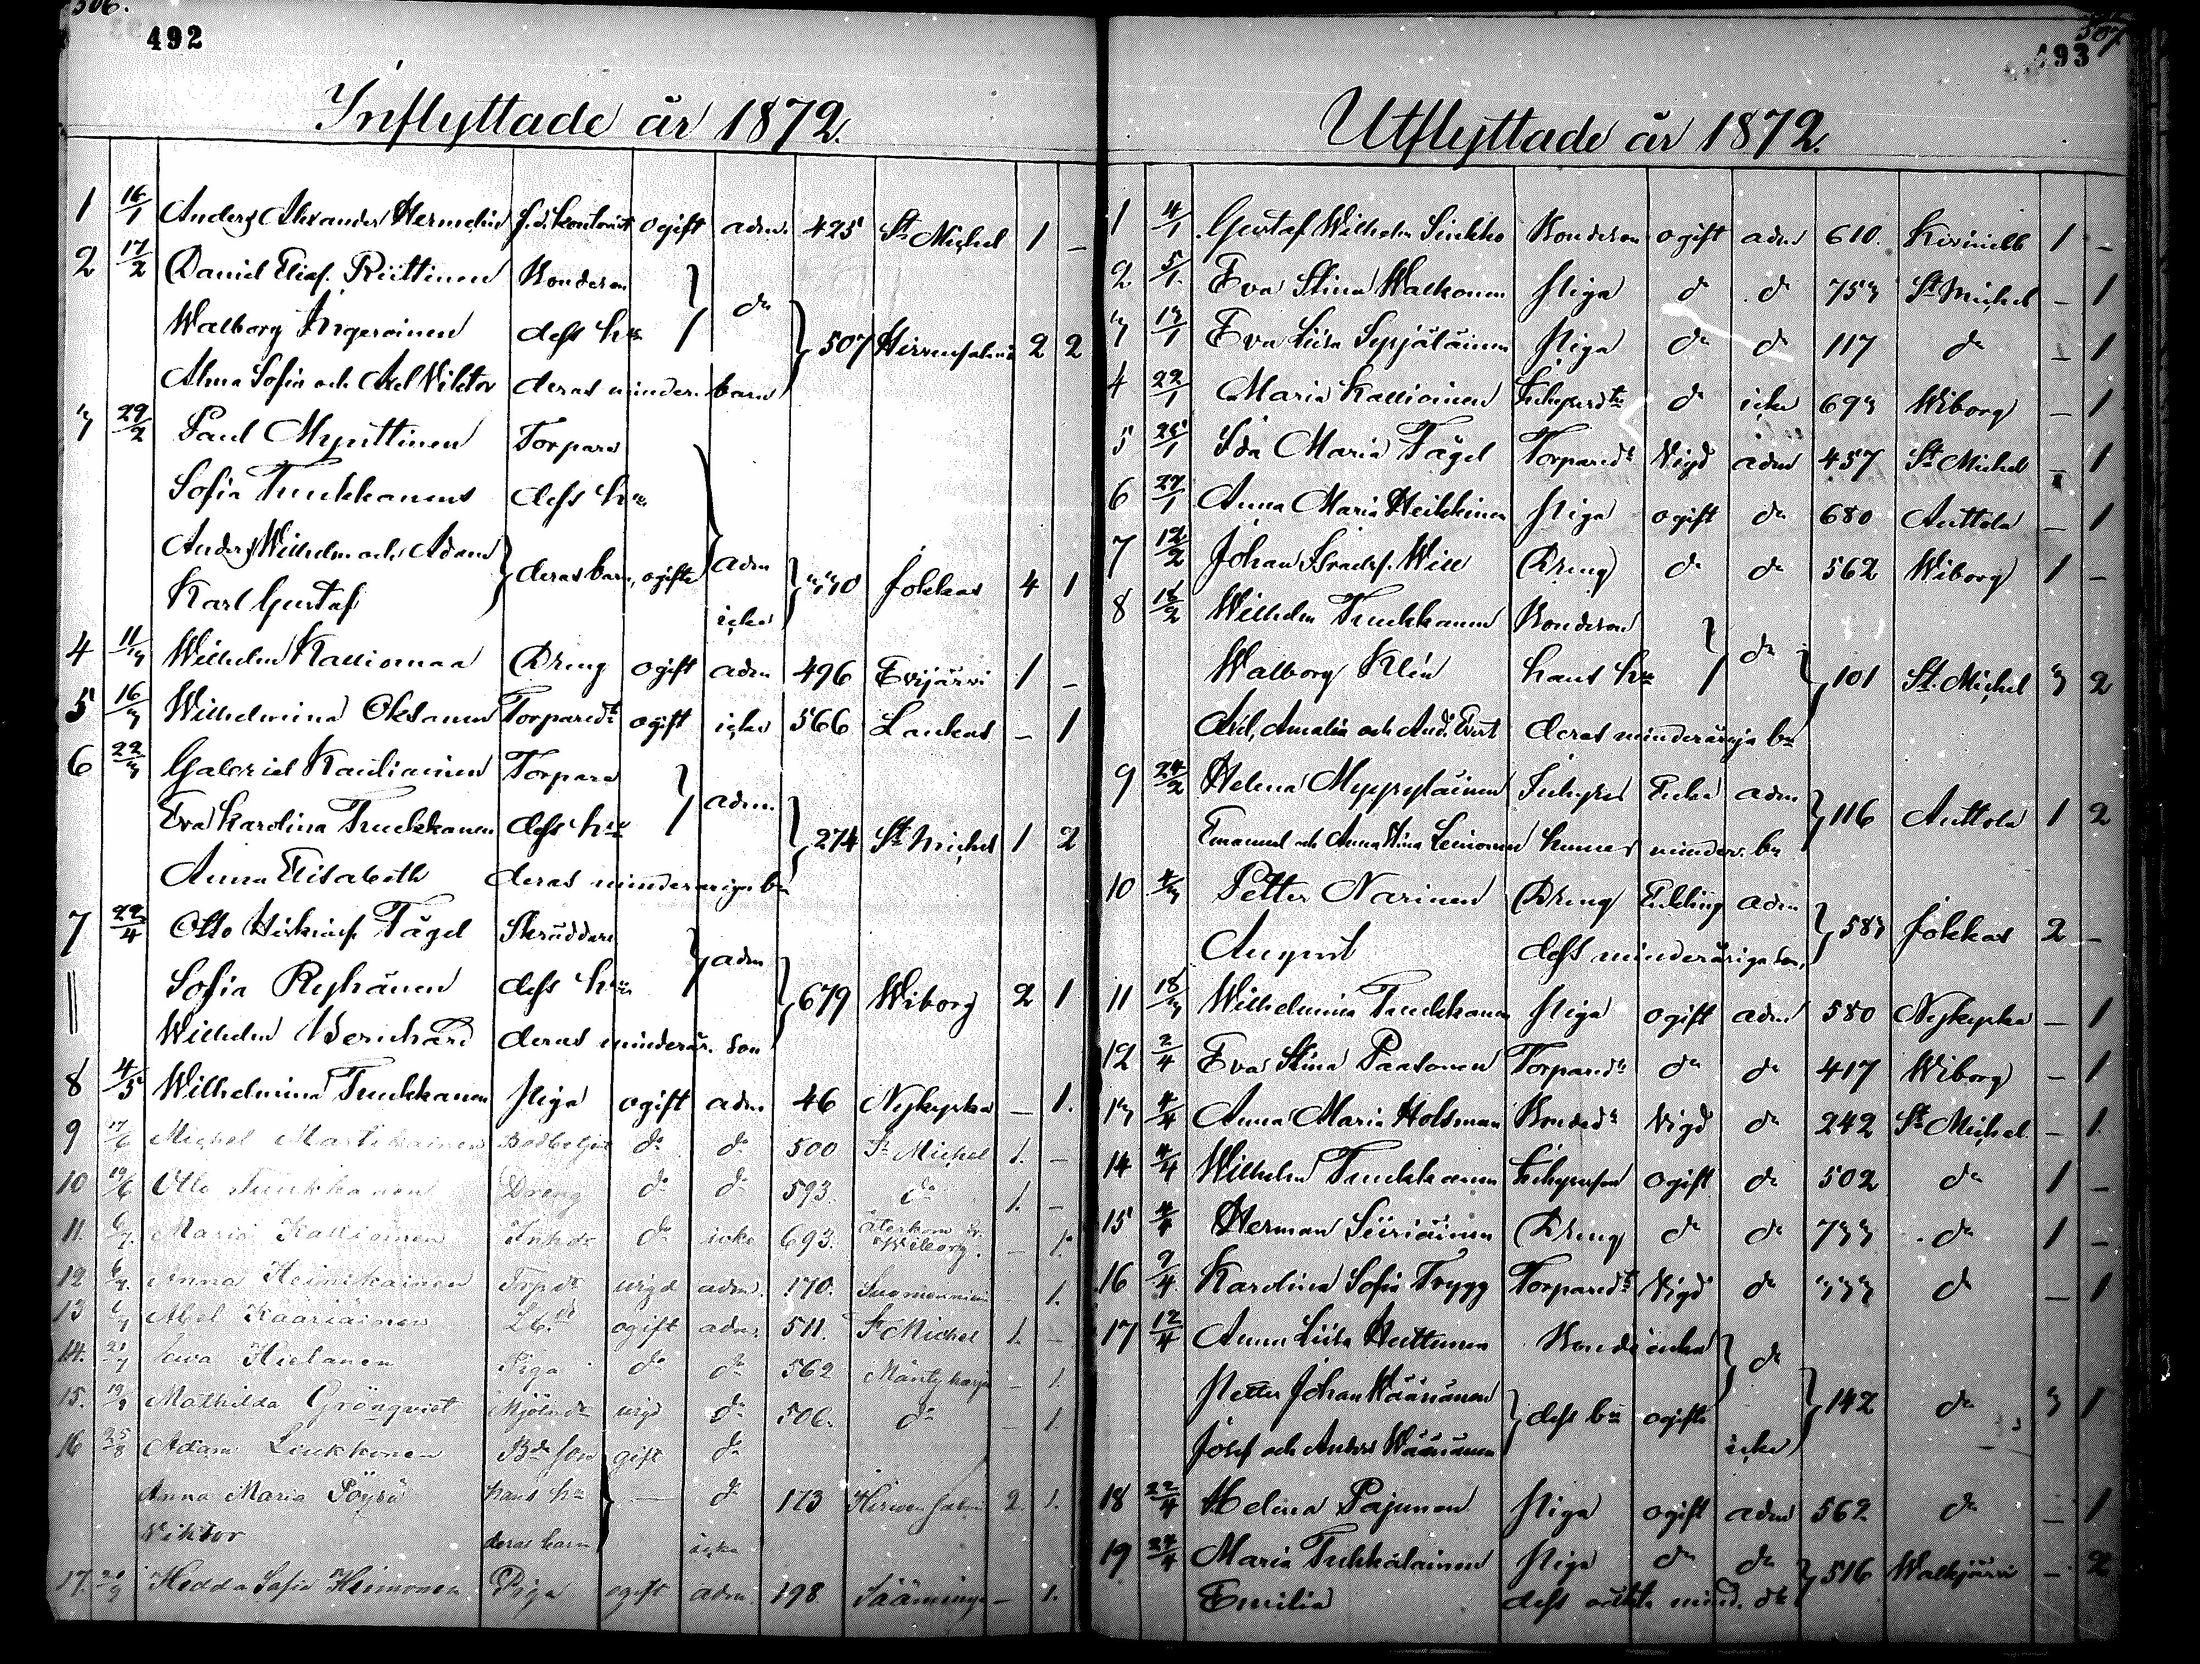 506.
492
Inflyttade år 1872.
1 16/1 Anders Alexander Hermelin f.d. kontorist ogift adm. 425 St Michel 1 –
2 17/2 Daniel Eliass. Riittinen Bondeson } do
Walborg Ingeroinen dess hu } 507 Hirvensalmi 2 2
Alma Sofia och Axel Viktor deras minder. barn
3 29/2 Paul Mynttinen Torpare
Sofia Truukkanens dess hu
Anders Wilhelm och Adam } deras barn, ogifta adm } 330 Jokkas 4 1
Karl Gustaf icke
4 11/3 Wilhelm Kalliomaa Dreng ogift adm 496 Evijärvi 1 –
5 16/3 Wilhelmina Oksanen Torparedr ogift icke 566 Laukas – 1
6 22/3 Gabriel Kauliainen Torpare } adm.
Eva Karolina Truukkanen dess hu } 274 St Michel 1 2
Anna Elisabeth deras minderåriga bn
7 22/4 Otto Henrikss. Tågel Skräddare } adm
Sofia Reyhänen dess hu } 679 Wiborg 2 1
Wilhelm Bernhard deras minderår. son
8 4/5 Wilhelmina Truukkanen Piga ogift adm 46 Nykyrka – 1.
9 17/6 Michel Martikainen do do 500 St Michel 1. –
10 19/6 Otto Truukkanen Dreng do do 593. do 1. –
11. 6/7. Maria Kallioinen Inhdr do icke 693. återkom fr. Wiborg. – 1.
12 6/7. Anna Heinikainen Trpdr wigd adm. 170. Suomenniemi – 1.
13 Abel Kääriäinen ogift adm. 511. St Michel 1. –
14. 21/7 Eva Hietanen Piga do do 562 Mäntyharju – 1.
15. 19/8 Mathilda Grönqvist Mjölndr wigd do 506. do – 1.
16 25/8 Adam Liukkonen Bde son gift do
Anna Maria Pöyry hans hu — do 173 Hirvensalmi 2. 1.
Viktor deras barn icke
17. Hedda Sofia Heimonen Piga ogift adm. 198 Sääminge – 1.
507
493
Utflyttade år 1872.
1 4/1 Gustaf Wilhelm Sinkko Bondeson ogift adm 610. Kivinebb 1 –
2 5/1. Eva Stina Walkonen Piga do do 753 St Michel – 1
3 13/1 Eva Liisa Seppäläinen Piga do do 117 do – 1
4 22/1 Maria Kallioinen Inhysedr do icke 693 Wiborg – 1
5 25/1 Ida Maria Tågel Torparedr Vigd adm 457 St Michel – 1
6 27/1 Anna Maria Heikkinen Piga ogift do 680 Anttola – 1
7 12/2 Johan Fredrikss. Will Dreng do do 562 Wiborg 1 –
8 18/2 Wilhelm Truukkanen Bondeson } do
Walborg Klén hans hu } 101 St. Michel 3 2
Axel, Amalia och And. Evert deras minderåriga bn
9 24/2 Helena Myyryläinen Inhyses Enka adm } 116 Anttola 1 2
Emanuel och Anna Stina Leinonen hennes minder. bn
10 4/3 Petter Narinen Dreng Enkling adm } 583 Jokkas 2 –
August dess minderåriga son,
11 18/3 Wilhelmina Truukkanen Piga ogift adm 580 Nykyrka – 1
12 2/4 Eva Stina Paasonen Torparedr do do 417 Wiborg – 1
13 4/4 Anna Maria Holsman Bondedr Vigd do 242 St Michel – 1
14 4/4 Wilhelm Truukkanen Inhysesson ogift do 502 do 1 –
15 4/4 Herman Siiriäinen Dreng do do 733 do 1 –
16 9/4 Karolina Sofia Trygg Torparedr Vigd do 333 do – 1
17 12/4 Anna Liisa Huttunen Bonde enka } do
Petter Johan Väänänen } dess bn ogifta } 142 do 3 1
Josef och Anders Väänänen icke
18 22/4 Helena Pajunen Piga ogift adm 562 do – 1
19 24/4 Maria Tukkalainen Piga do do } 516 Walkjärvi – 2
Emilia dess oäkta mind. dr